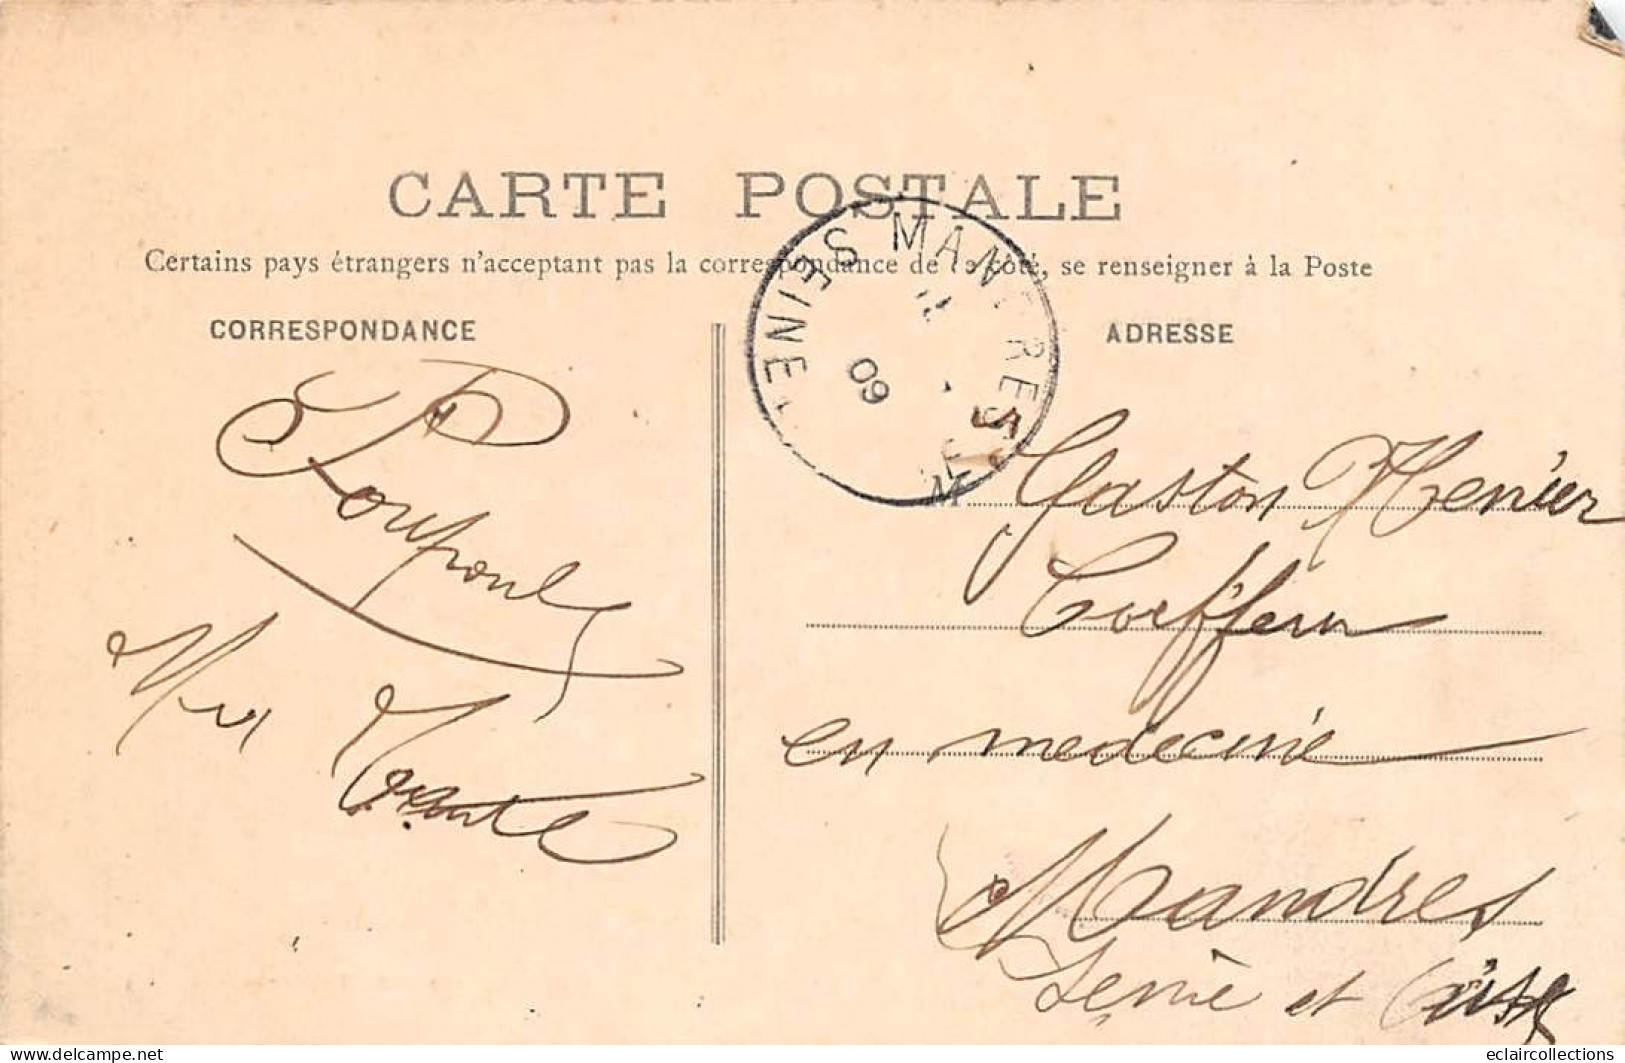 CARTE POSTALE
Certains pays étrangers n'acceptant pas la correspondance de ce côté, se renseigner à la Poste
CORRESPONDANCE
ADRESSE
SEINE
MANDRES
09
M
Gaston Menier
Coeffeur
en medecine
Mandres
Seine et Oise
Poupoule
delcampe.net
eclaircollections